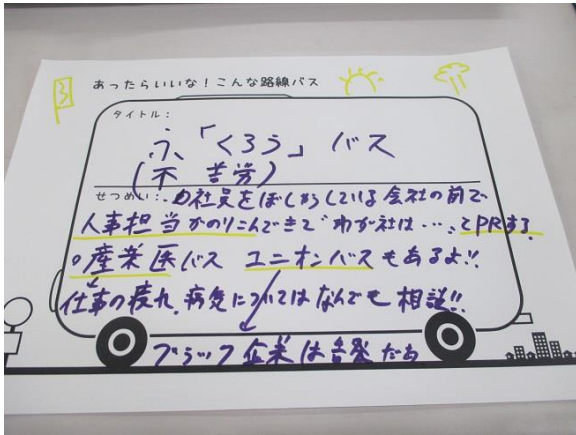 あったらいいな！こんな路線バス
タイトル：
ふ「くろう」バス
(不 苦労)
せつめい：・社員をほしがっている会社の前で
人事担当がのりこんできて"わが社は…、とPRする
○産業医バス ユニオンバスもあるよ!!
仕事の疲れ、病気についてはなんでも相談!!
ブラック企業は告発だ